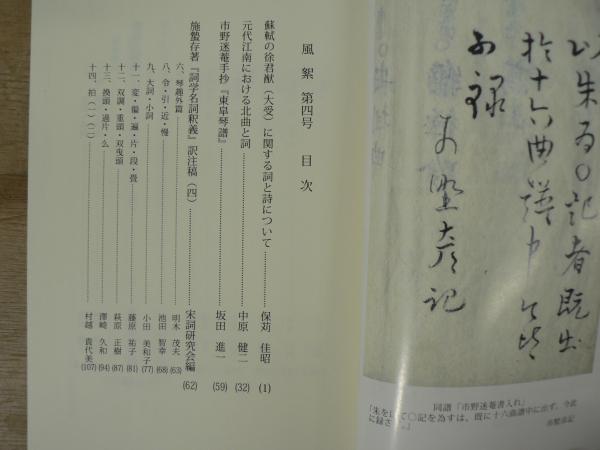 以朱為○記者既出
於十六曲譜中今皆
不録
同譜「市野迷菴書入れ」
「朱を以て○記を為すは、既に十六曲譜中に出す、今此
に録さ
記」
風絮 第四号 目次
蘇軾の徐君猷（大受）に関する詞と詩について 保苅 佳昭 (1)
元代江南における北曲と詞 中原 健二 (32)
市野迷菴手抄『東皐琴譜』 坂田 進一 (59)
施蟄存著『詞学名詞釈義』訳注稿（四） 宋詞研究会編 (62)
六、琴趣外篇 明木 茂夫 (63)
八、令・引・近・慢 池田 智幸 (68)
九、大詞・小詞 小田 美和子 (77)
十一、変・徧・遍・片・段・畳 藤原 祐子 (81)
十二、双調・重頭・双曳頭 萩原 正樹 (87)
十三、換頭・過片・么 澤崎 久和 (94)
十四、拍（一）（二） 村越 貴代美 (107)